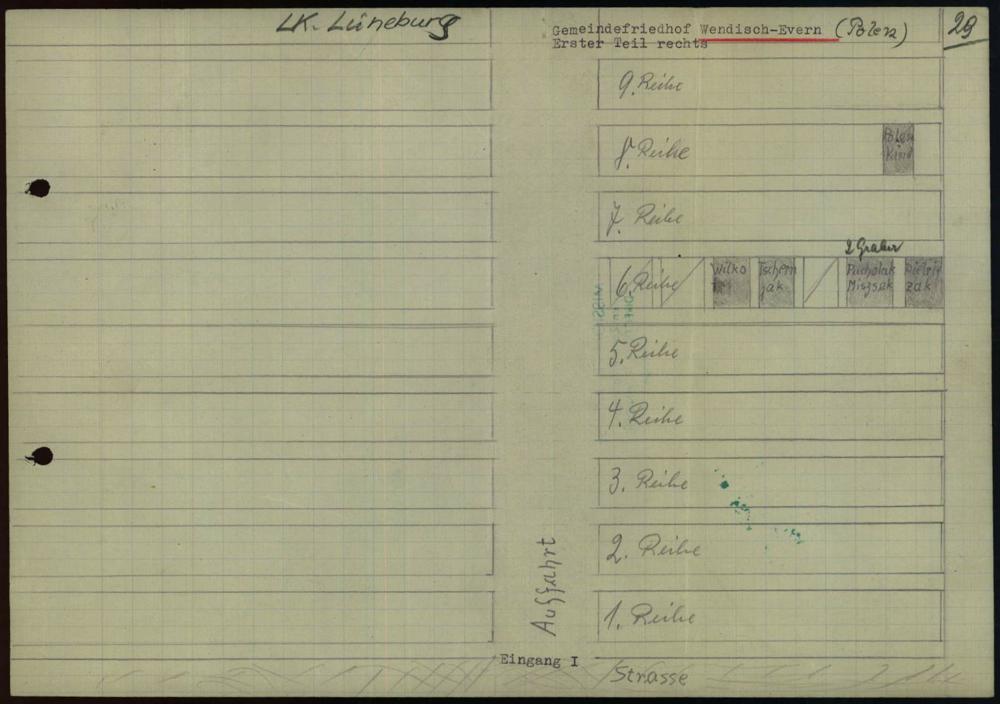 LK. Lüneburg
Gemeindefriedhof Wendisch-Evern (Polen)
29
Erster Teil rechts
9. Reihe
8. Reihe
Polen
Kind
7. Reihe
2 Gräber
6. Reihe
Wilko
Tschern
jak
Pucholak
Miszsak
zak
5. Reihe
4. Reihe
3. Reihe
2. Reihe
1. Reihe
Auffahrt
Eingang I
Strasse